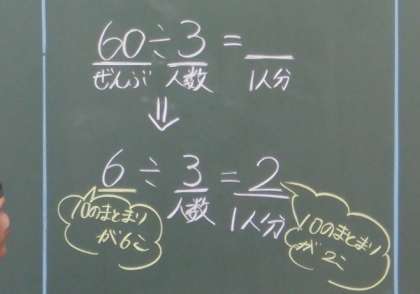 60÷3=
ぜんぶ 人数 1人分
⇓
6÷3=2
人数 1人分
10のまとまり
が6こ
10のまとまり
が2こ